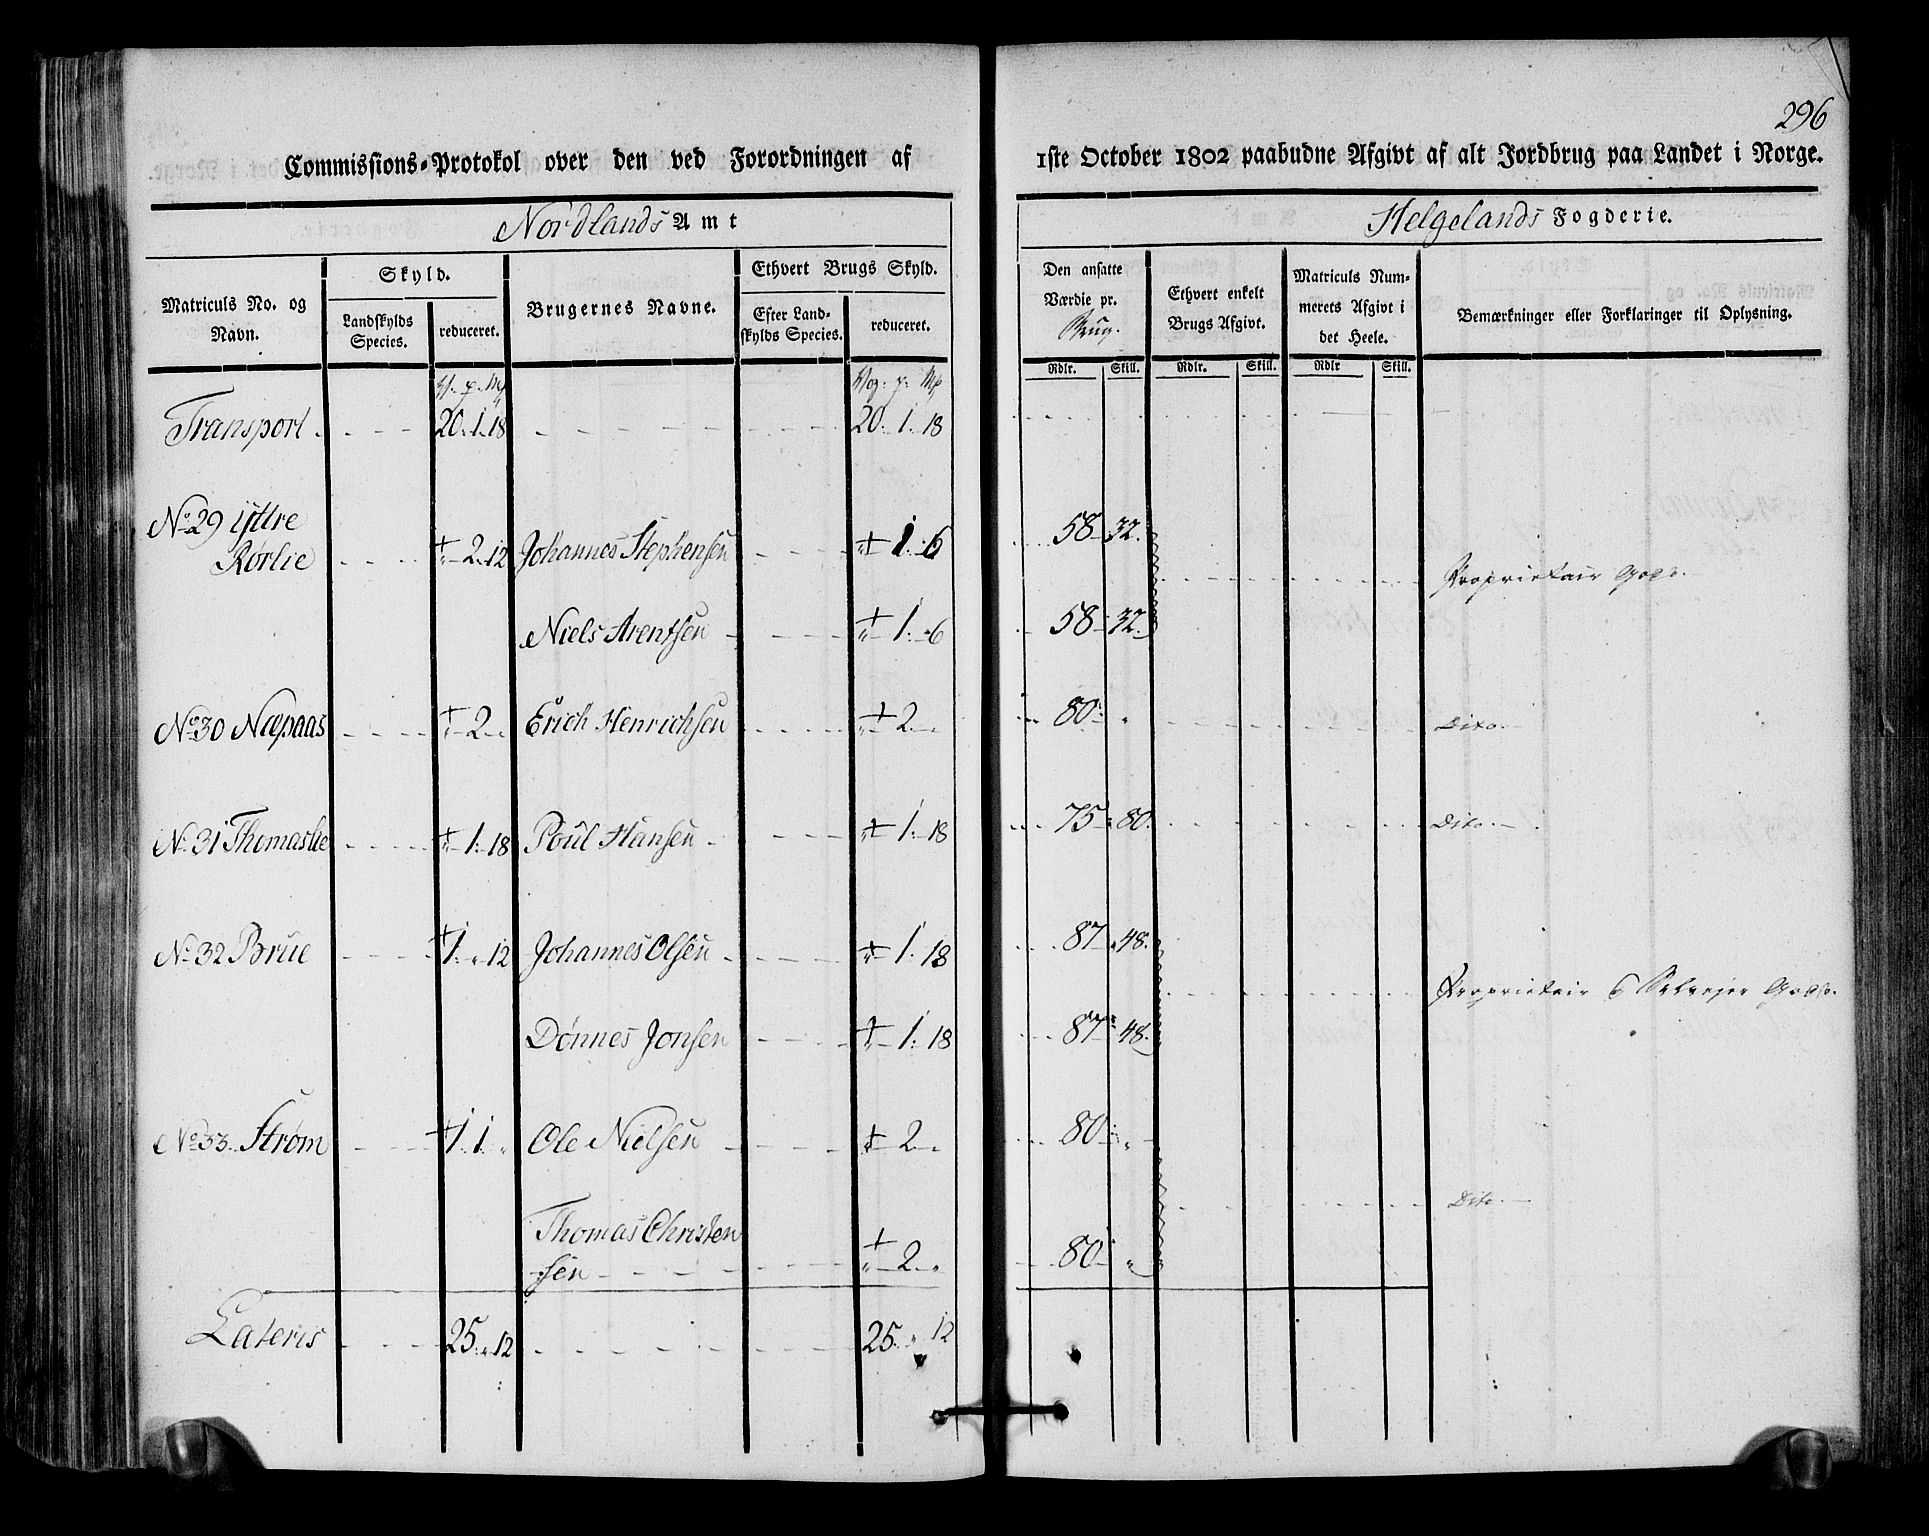 296
Commissions-Protokol over den ved Forordningen af 1ste October 1802 paabudne Afgivt af alt Jordbrug paa Landet i Norge.
Nordlands Amt
Helgelands Fogderie.
Matriculs No. og Navn.
Skyld.
Landskylds Species.
reduceret.
Brugernes Navne.
Ethvert Brugs Skyld.
Efter Landskylds Species.
reduceret.
Den ansatte Værdie pr. Brug.
Ethvert enkelt Brugs Afgivt.
Matriculs Nummerets Afgivt i det Heele.
Bemærkninger eller Forklaringer til Oplysning.
Rdlr. Skill. Rdlr. Skill. Rdlr Skill.
Transport 20. 1. 18 20. 1. 18
No. 29 Yttre
Rørlie 2. 12 Johannes Stephensen 1. 6 58 32.
Proprietair Gods.
Niels Arentsen 1. 6 58 32.
No. 30 Næpaas 2 Erich Henrichsen 2 80 " Dito.
No. 31 Thomaslie 1. 18 Poul Hansen 1. 18 75 80. Dito.
No. 32 Brue 1. " 12 Johannes Olsen 1. 18 87 48.
Proprietair & Selvejer Gods.
Dønnes Jonsen 1. 18 87 48.
No. 33. Strøm 1. 1. " Ole Nielsen 2 80 "
Dito.
Thomas Christen
sen 2 " 80 "
Lateris 25. " 12 25. " 12